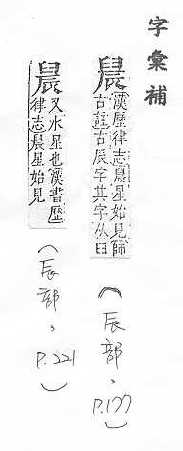 字彙補
䢅
漢歷律志䢅星始見師
古註古辰字其字从臼
(辰部，P.177)
晨
又水星也漢書歷
律志晨星始見
(辰部，P.221)